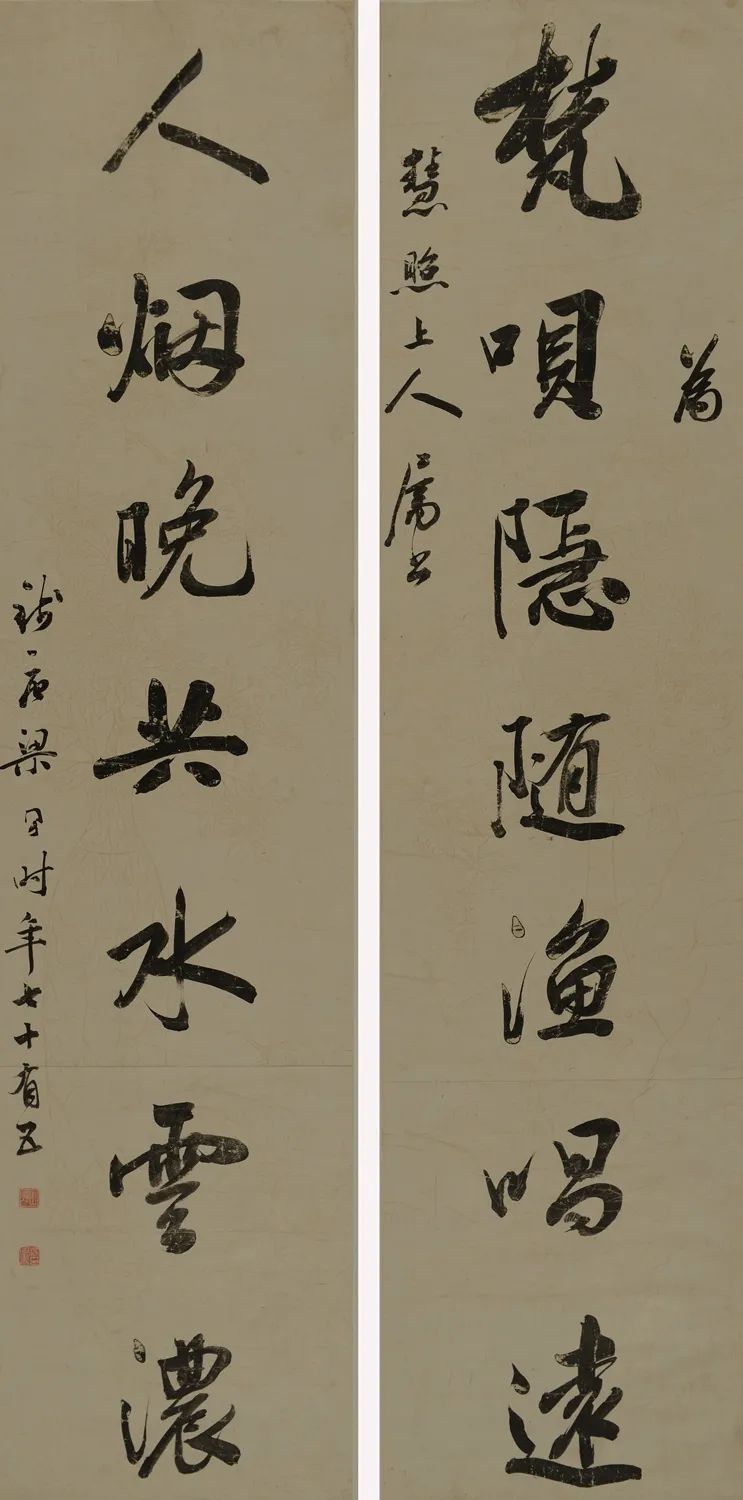 為
梵唄隱随漁唱遠
慧照上人屬書
人烟晚共水雲濃
錢唐梁同書時年七十有五